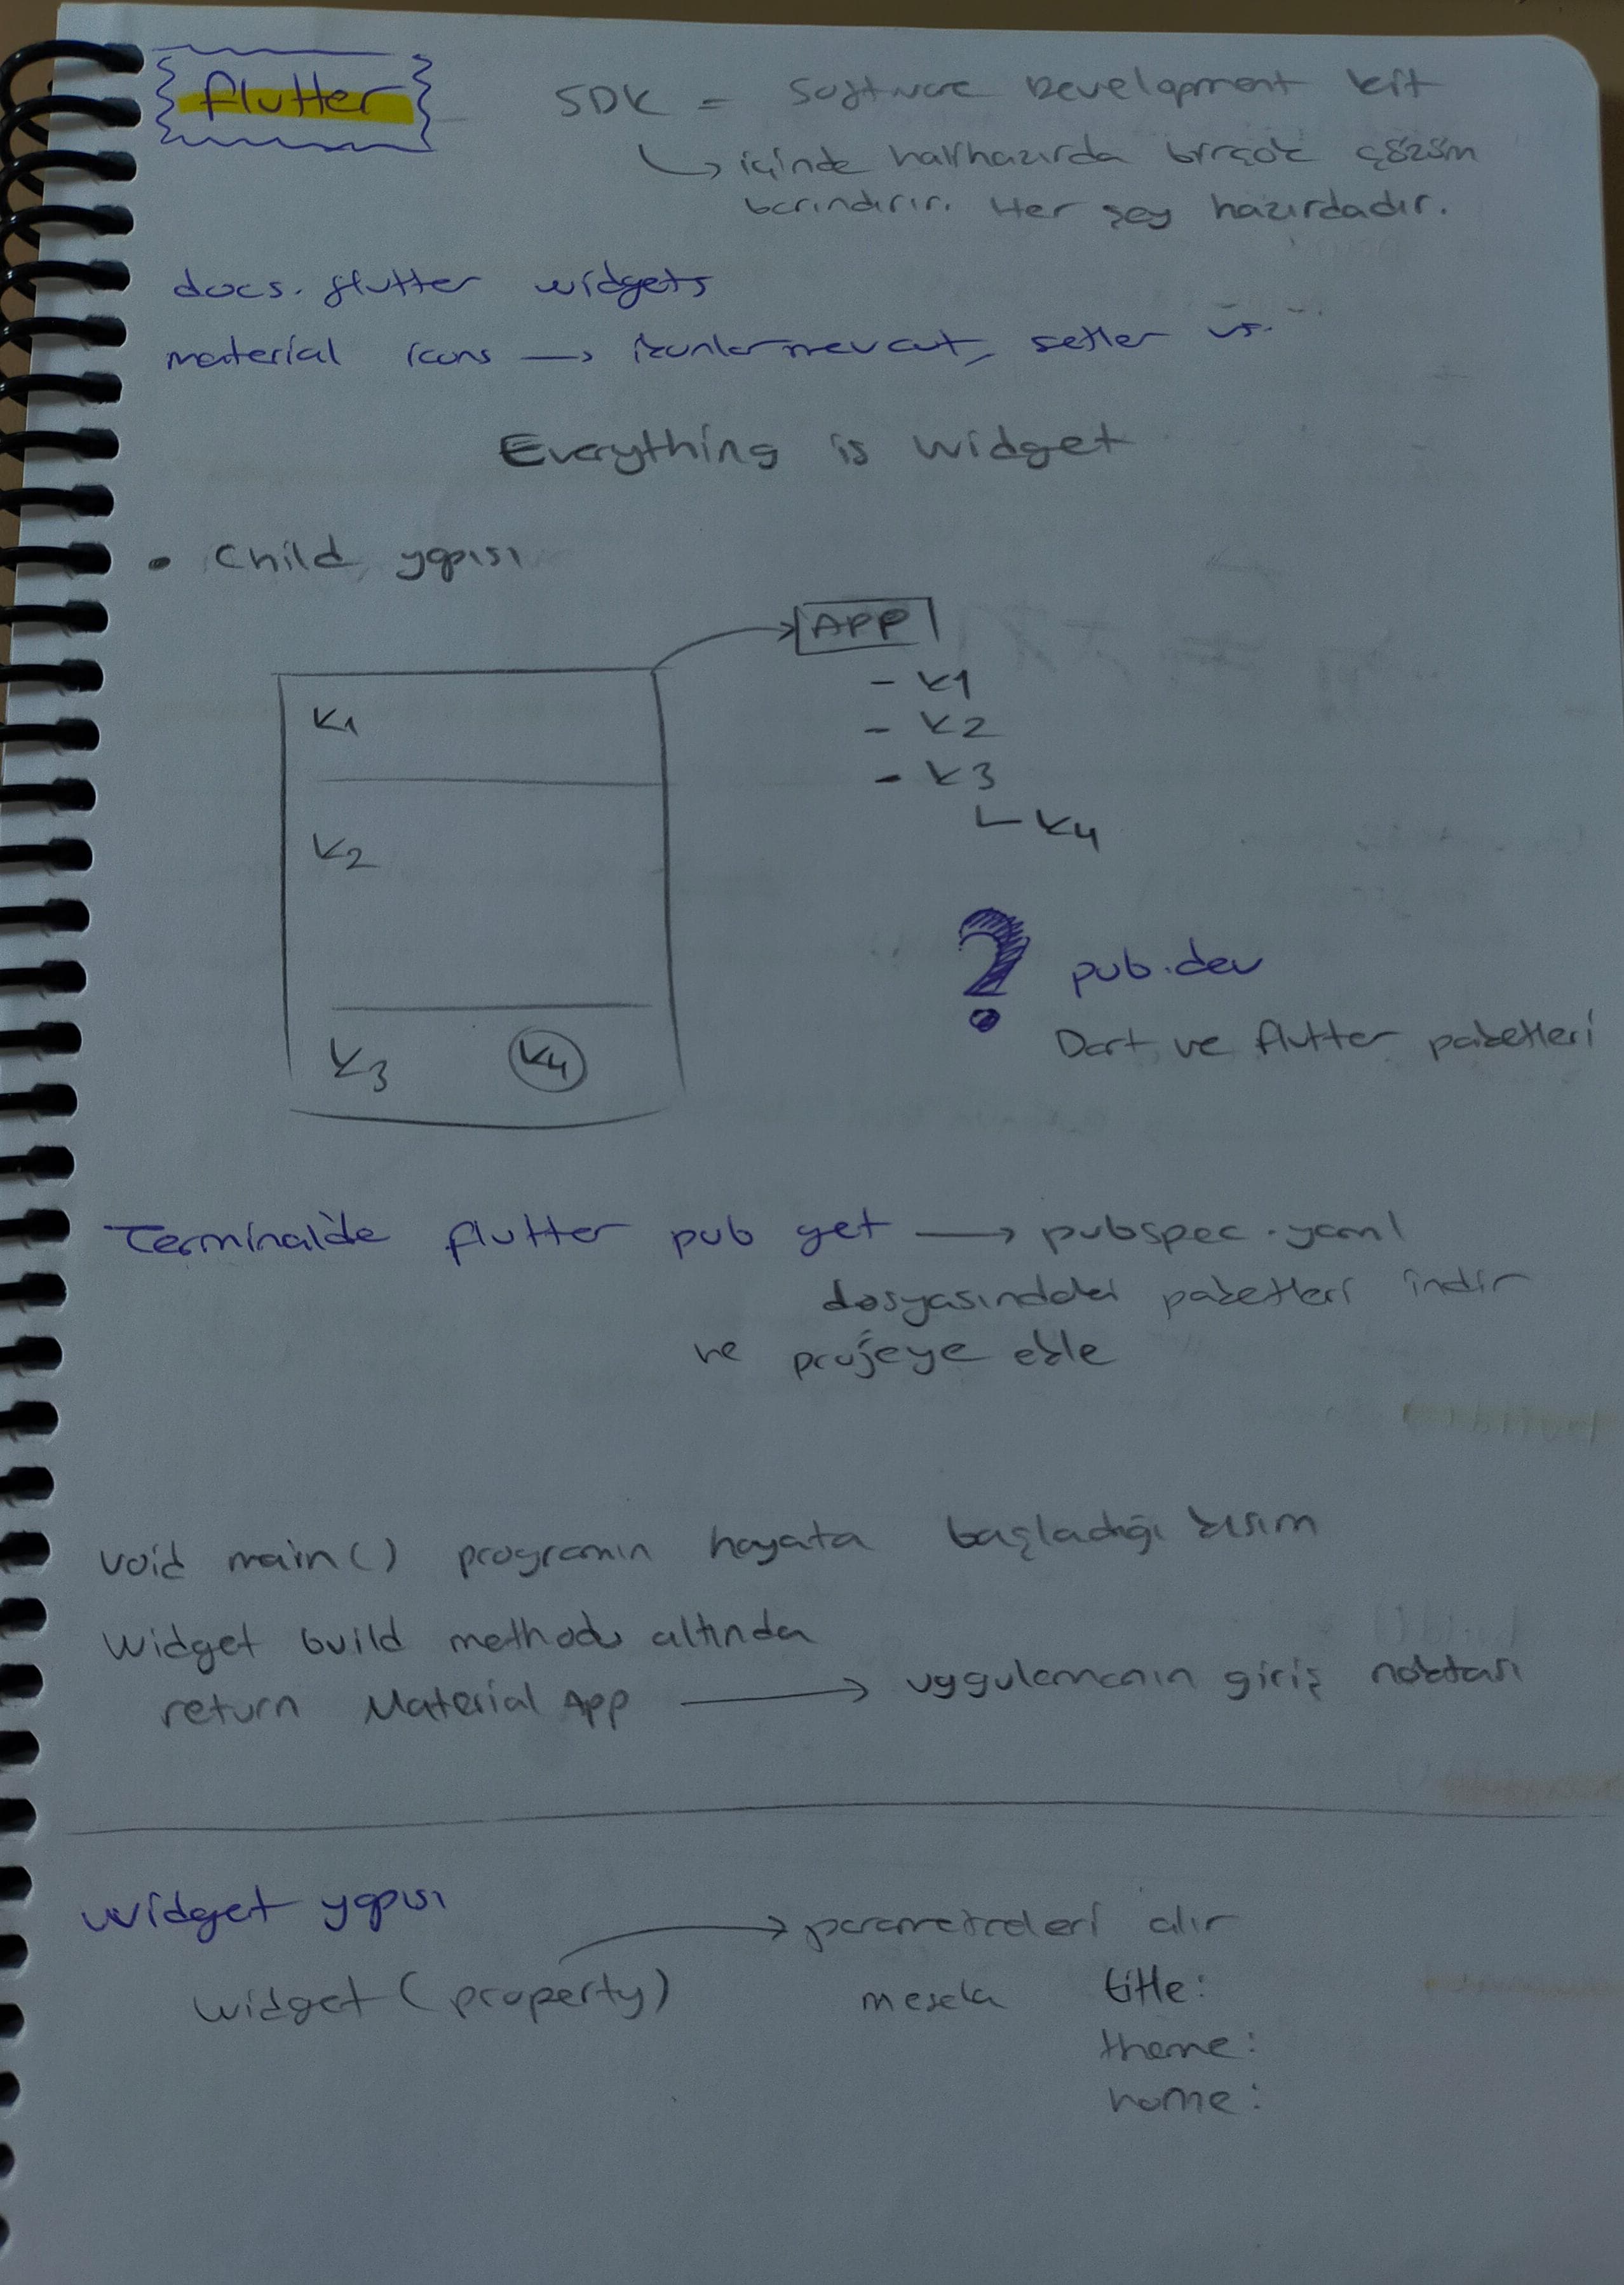 flutter
SDK = Software Development kit
↳ içinde halihazırda birçok çözüm
barındırır. Her şey hazırdadır.
docs. flutter widgets
material icons → ikonlar mevcut, setler vs.
Everything is widget
• Child yapısı
APP
K1
- K1
- K2
- K3
K2
└ K4
? pub.dev
Dart ve flutter paketleri
K3 K4
Terminal'de flutter pub get → pubspec.yaml
dosyasındaki paketleri indir
ve projeye ekle
void main() programın hayata başladığı kısım
Widget build methodu altında
return Material App → uygulamanın giriş noktası
Widget yapısı
→ parametreleri alır
widget (property) mesela title:
theme:
home: